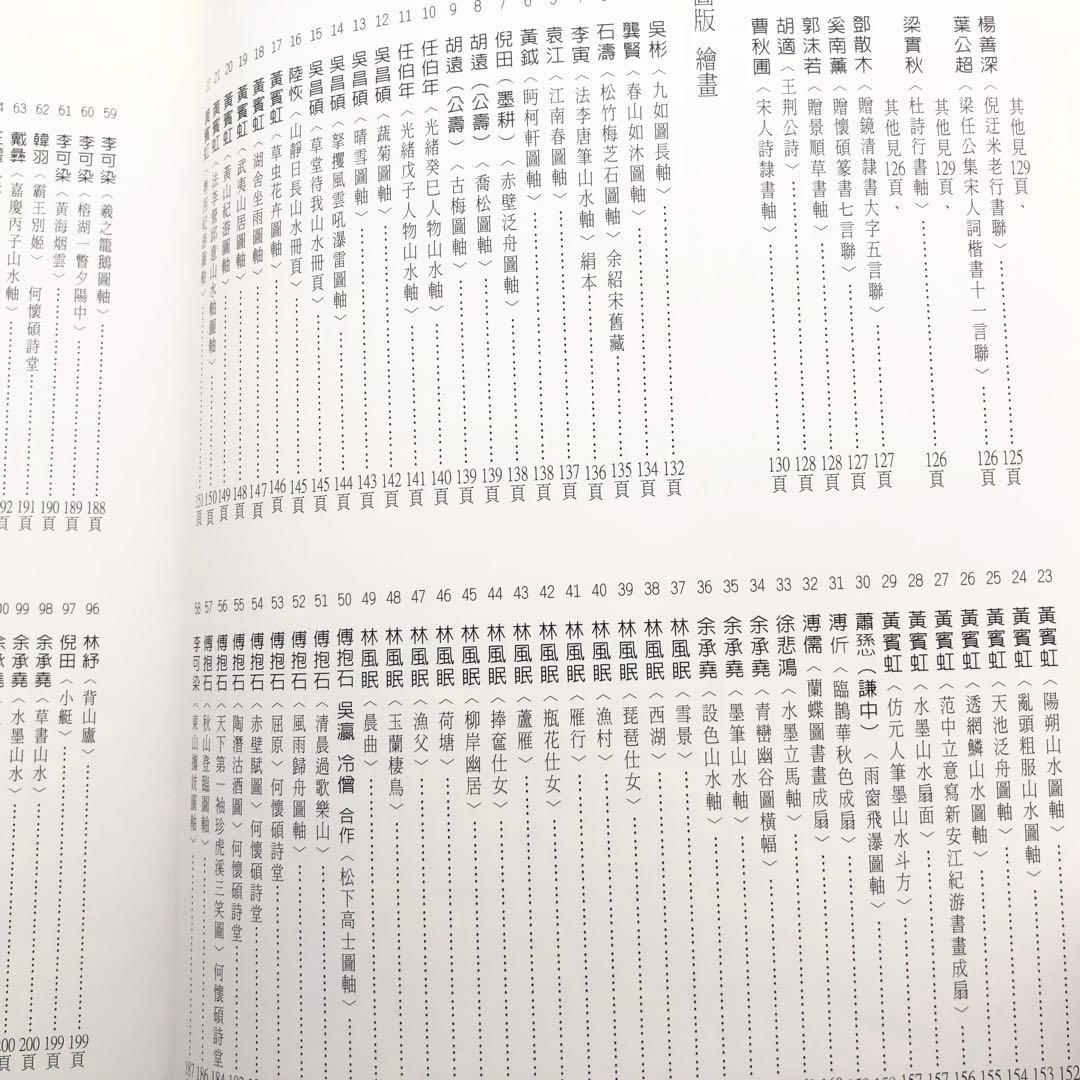 楊善深〈倪迂米老行書聯〉125頁
其他見129頁、
葉公超〈梁任公集宋人詞楷書十一言聯〉126頁
其他見129頁、
梁實秋〈杜詩行書軸〉126頁
其他見126頁、
鄧散木〈贈鏡清隸書大字五言聯〉127頁
奚南薰〈贈懷碩篆書七言聯〉127頁
郭沫若〈贈景順草書軸〉128頁
胡適〈王荊公詩〉128頁
曹秋圃〈宋人詩隸書軸〉130頁
版 繪畫
吳彬〈九如圖長軸〉132頁
龔賢〈春山如沐圖軸〉134頁
石濤〈松竹梅芝石圖軸〉余紹宋舊藏135頁
李寅〈法李唐筆山水軸〉絹本136頁
袁江〈江南春圖軸〉137頁
6 黃鉞〈眄柯軒圖軸〉138頁
7 倪田(墨耕)〈赤壁泛舟圖軸〉138頁
8 胡遠(公壽)〈喬松圖軸〉139頁
9 胡遠(公壽)〈古梅圖軸〉139頁
10 任伯年〈光緒癸巳人物山水軸〉140頁
11 任伯年〈光緒戊子人物山水軸〉141頁
12 吳昌碩〈蔬菊圖軸〉142頁
13 吳昌碩〈晴雪圖軸〉143頁
14 吳昌碩〈拏攫風雲吼瀑雷圖軸〉144頁
15 吳昌碩〈草堂待我山水冊頁〉145頁
16 陸恢〈山靜日長山水冊頁〉145頁
17 黃賓虹〈草虫花卉圖軸〉146頁
18 黃賓虹〈湖舍坐雨圖軸〉147頁
19 黃賓虹〈武夷山居圖軸〉148頁
20 黃賓虹〈黃山紀游圖軸〉149頁
21 黃賓虹〈法李營邱意山水軸圖軸〉150頁
黃賓虹 151頁
23 黃賓虹〈陽朔山水圖軸〉152
24 黃賓虹〈亂頭粗服山水圖軸〉153
25 黃賓虹〈天池泛舟圖軸〉154
26 黃賓虹〈透網鱗山水圖軸〉155
27 黃賓虹〈范中立意寫新安江紀游書畫成扇〉156
28 黃賓虹〈水墨山水扇面〉157
29 黃賓虹〈仿元人筆墨山水斗方〉157
30 蕭愻(謙中)〈雨窗飛瀑圖軸〉
31 溥伒〈臨鵲華秋色成扇〉
32 溥儒〈蘭蝶圖書畫成扇〉
33 徐悲鴻〈水墨立馬軸〉
34 余承堯〈青巒幽谷圖橫幅〉
35 余承堯〈墨筆山水軸〉
36 余承堯〈設色山水軸〉
37 林風眠〈雪景〉
38 林風眠〈西湖〉
39 林風眠〈琵琶仕女〉
40 林風眠〈漁村〉
41 林風眠〈雁行〉
42 林風眠〈瓶花仕女〉
43 林風眠〈蘆雁〉
44 林風眠〈捧奩仕女〉
45 林風眠〈柳岸幽居〉
46 林風眠〈荷塘〉
47 林風眠〈漁父〉
48 林風眠〈玉蘭棲鳥〉
49 林風眠〈晨曲〉
50 傅抱石 吳瀛 冷僧 合作〈松下高士圖軸〉
51 傅抱石〈清晨過歌樂山〉
52 傅抱石〈風雨歸舟圖軸〉
53 傅抱石〈屈原〉何懷碩詩堂
54 傅抱石〈赤壁賦圖〉何懷碩詩堂
55 傅抱石〈陶潛沽酒圖〉何懷碩詩堂
56 傅抱石〈天下第一袖珍虎溪三笑圖〉何懷碩詩堂 184
57 傅抱石〈秋山登臨圖軸〉186
58 李可染〈東山攜妓圖軸〉187
59 李可染〈羲之籠鵝圖軸〉188頁
60 李可染〈榕湖一瞥夕陽中〉189頁
61 李可染〈黃海烟雲〉190頁
62 韓羽〈霸王別姬〉何懷碩詩堂191頁
63 戴彝〈嘉慶丙子山水軸〉192頁
96 林紓〈背山廬〉199頁
97 倪田〈小艇〉199頁
98 余承堯〈草書山水〉200頁
99 余承堯〈水墨山水〉200頁